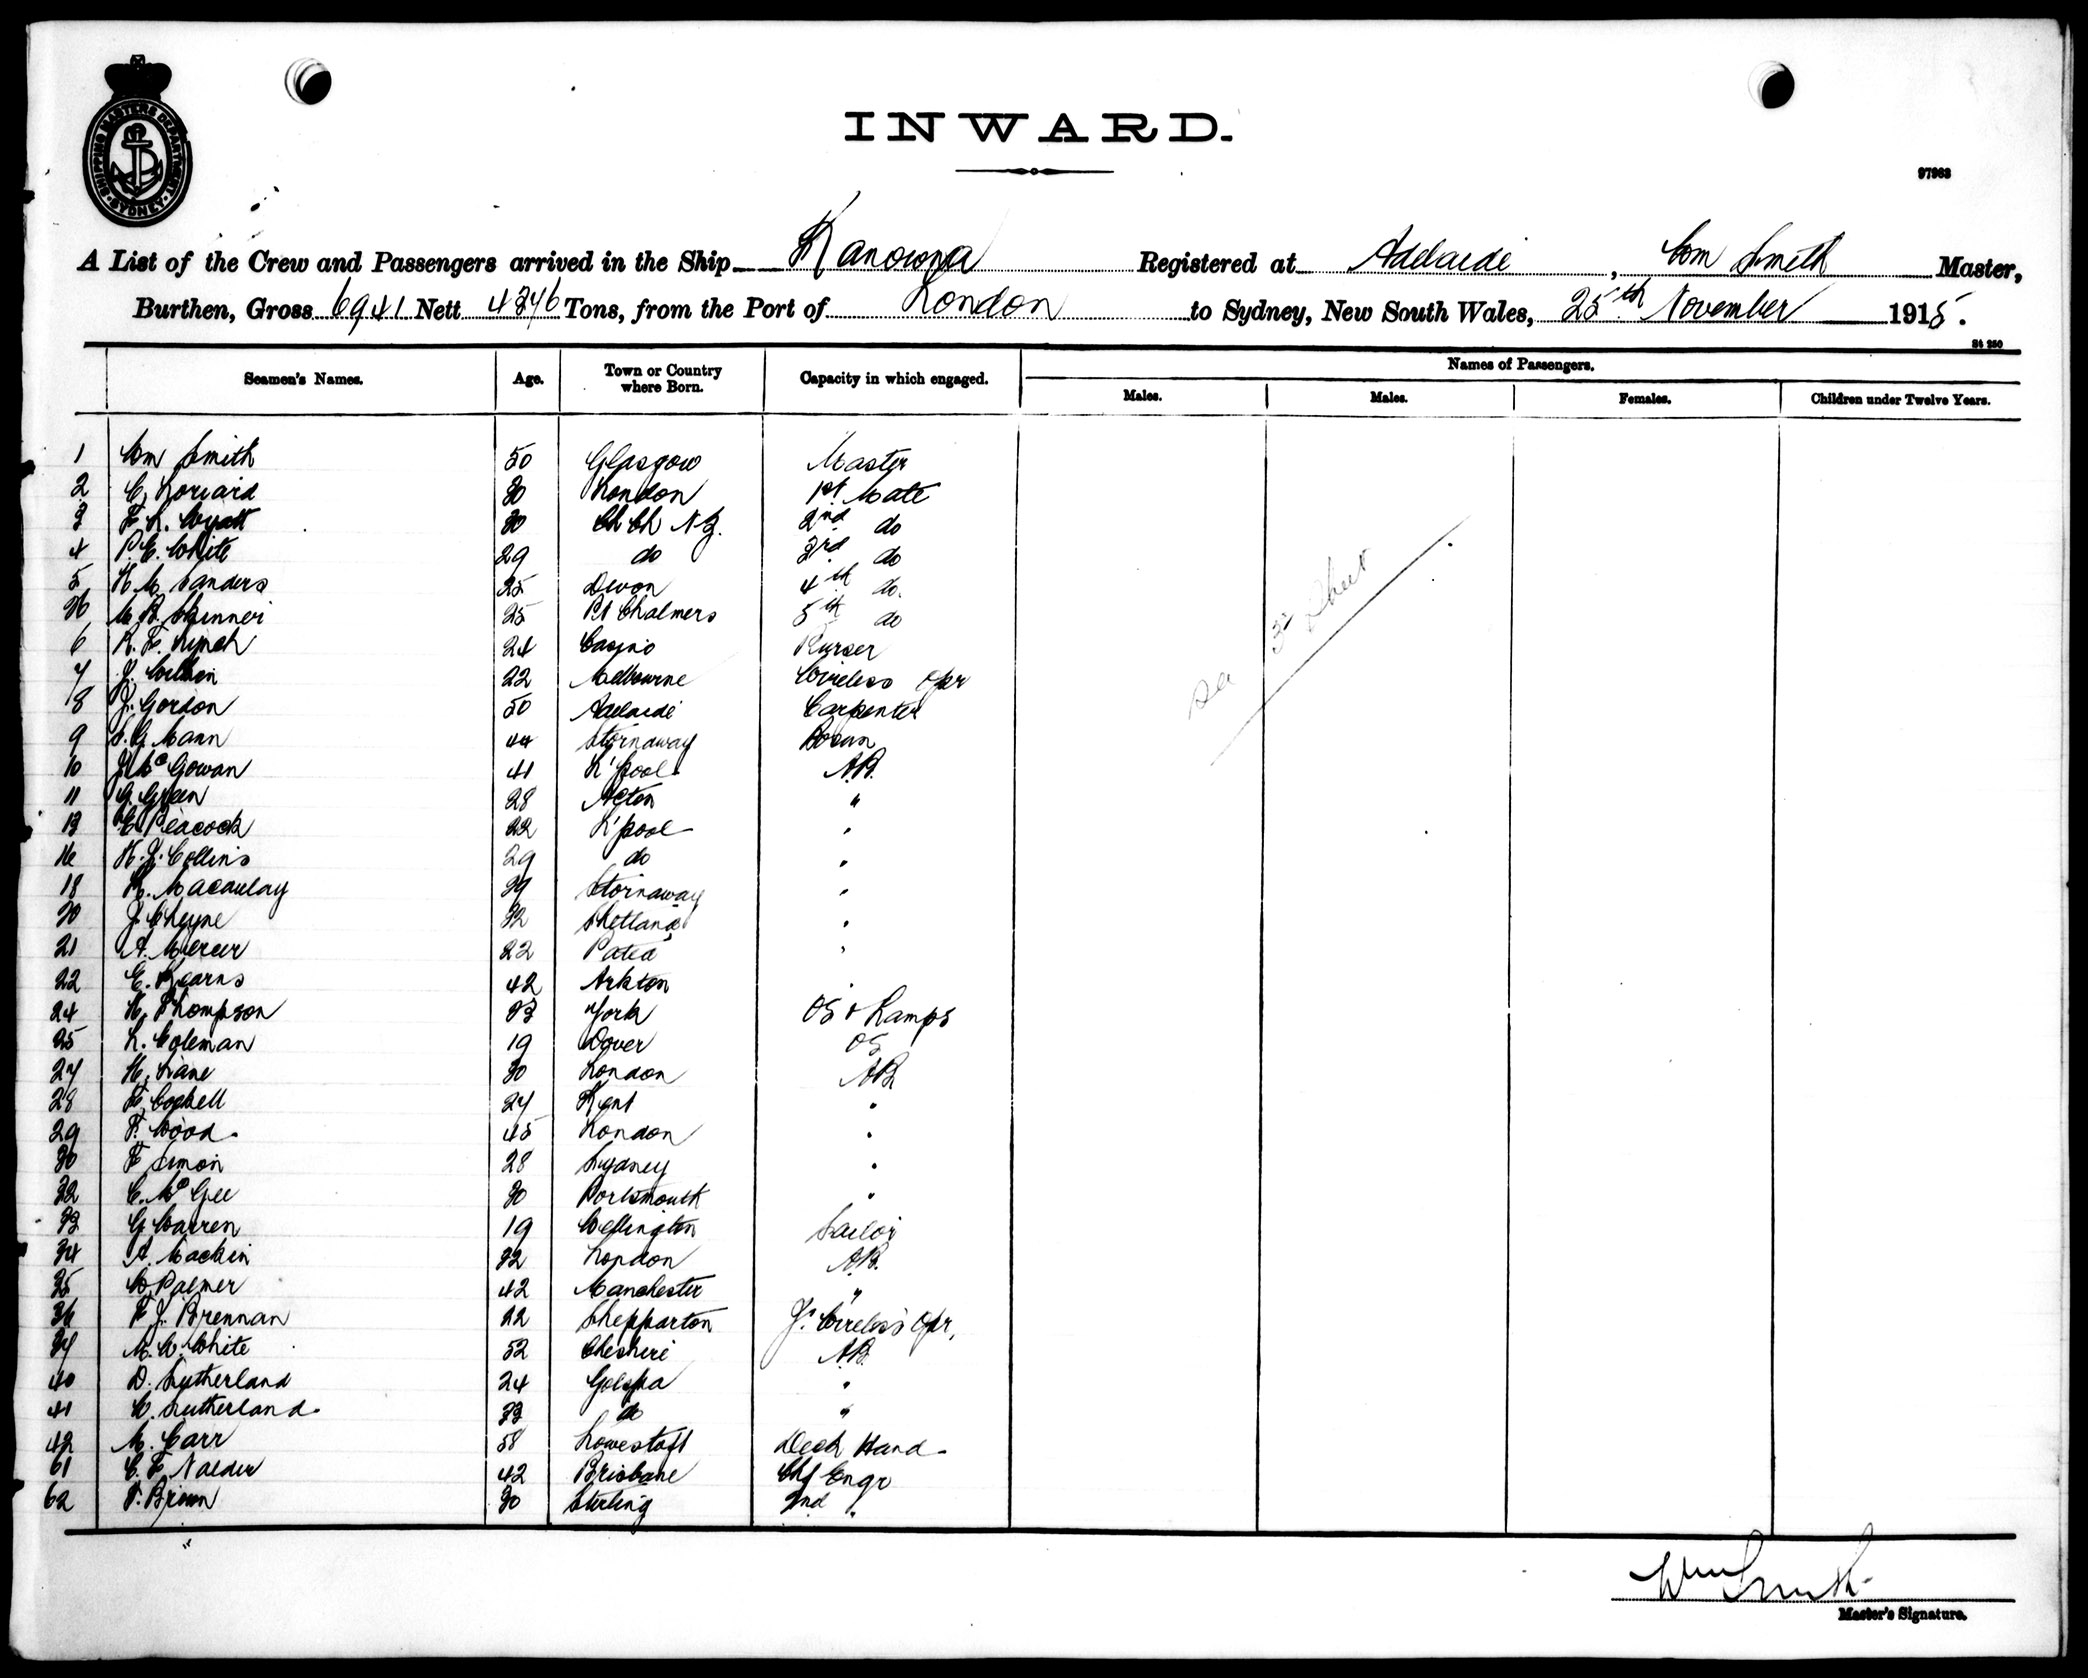 SHIPPING MASTERS DEPARTMENT
SYDNEY
INWARD.
97963
A List of the Crew and Passengers arrived in the Ship Kanowna Registered at Adelaide, Wm Smith Master,
Burthen, Gross 6941 Nett Tons, from the Port of London to Sydney, New South Wales, 25th November 1915.
St 250
Seamen's Names. Age. Town or Country where Born. Capacity in which engaged. Names of Passengers.
Males. Males. Females. Children under Twelve Years.
1 Wm Smith 50 Glasgow Master
2 C. Loriard 30 London 1st Mate
3 F. L. Wyatt 30 Ch Ch N.Z. 2nd do
4 P. C. White 29 do 3rd do
5 H. M. Sanders 25 Devon 4th do.
M. B. Skinner 25 Pt Chalmers 5th do
6 R. F. Lynch 24 Casino Purser
7 J. 22 Melbourne Wireless Opr
8 J. Gordon 50 Adelaide Carpenter
9 Mann 44 Stornaway Bosun
10 J. McGowan 41 L'pool A.B.
11 G. Green 28 Acton "
13 E. Peacock 22 L'pool "
16 H. J. Collins 29 do "
18 Macaulay 29 Stornaway "
20 J. Cheyne 32 Shetland "
21 A. Mercer 22 Patea "
22 E. Kearns 42 "
24 H. Thompson 33 York OS & Lamps
25 L. Coleman 19 Dover OS
27 H. Lane 30 London AB
28 F. Cockell 27 Kent "
29 F. Wood. 45 London "
30 F. Simon 28 Sydney "
32 C. McGee 30 Portsmouth "
33 G. Warren 19 Wellington Sailor
34 A. Mackin 32 London A.B.
35 W. Palmer 42 Manchester "
36 F. J. Brennan 22 Shepparton Jr. Wireless Opr,
37 M. W. White 52 Cheshire A.B.
40 D. Sutherland 24 Golspa "
41 W. Sutherland. 33 do "
42 M. Carr 58 Lowestoft Deck Hand
61 C. F. Nalder 42 Brisbane Chf Engr
62 F. Brown 30 Sterling 2nd "
Wm Smith
Master's Signature.